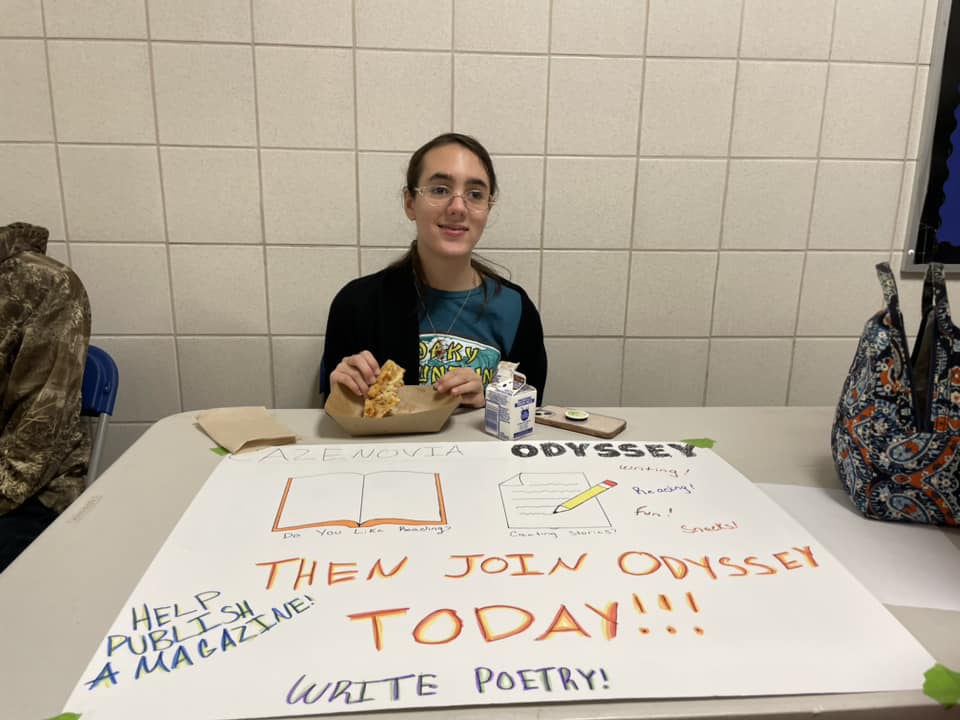 CAZENOVIA ODYSSEY
Writing!
Reading!
Fun!
Snacks!
Do You Like Reading?
Creating Stories?
THEN JOIN ODYSSEY
TODAY!!!
HELP
PUBLISH
A MAGAZINE!
WRITE POETRY!